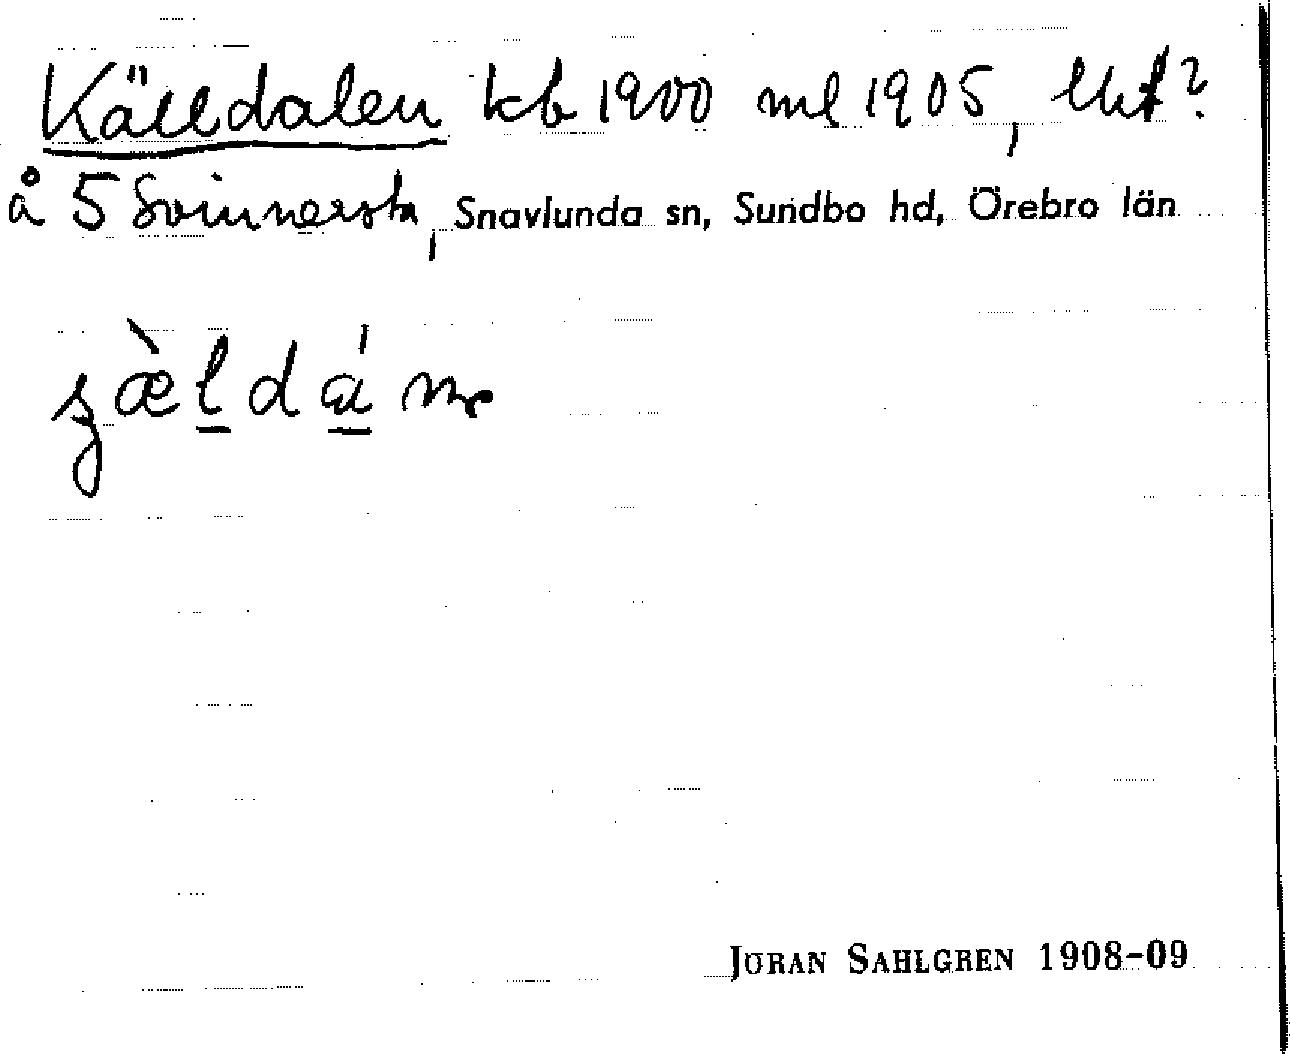 Källdalen kb 1900 ml 1905,
å 5 Svinnersta, Snavlunda sn, Sundbo hd, Örebro län
JÖRAN SAHLGREN 1908-09